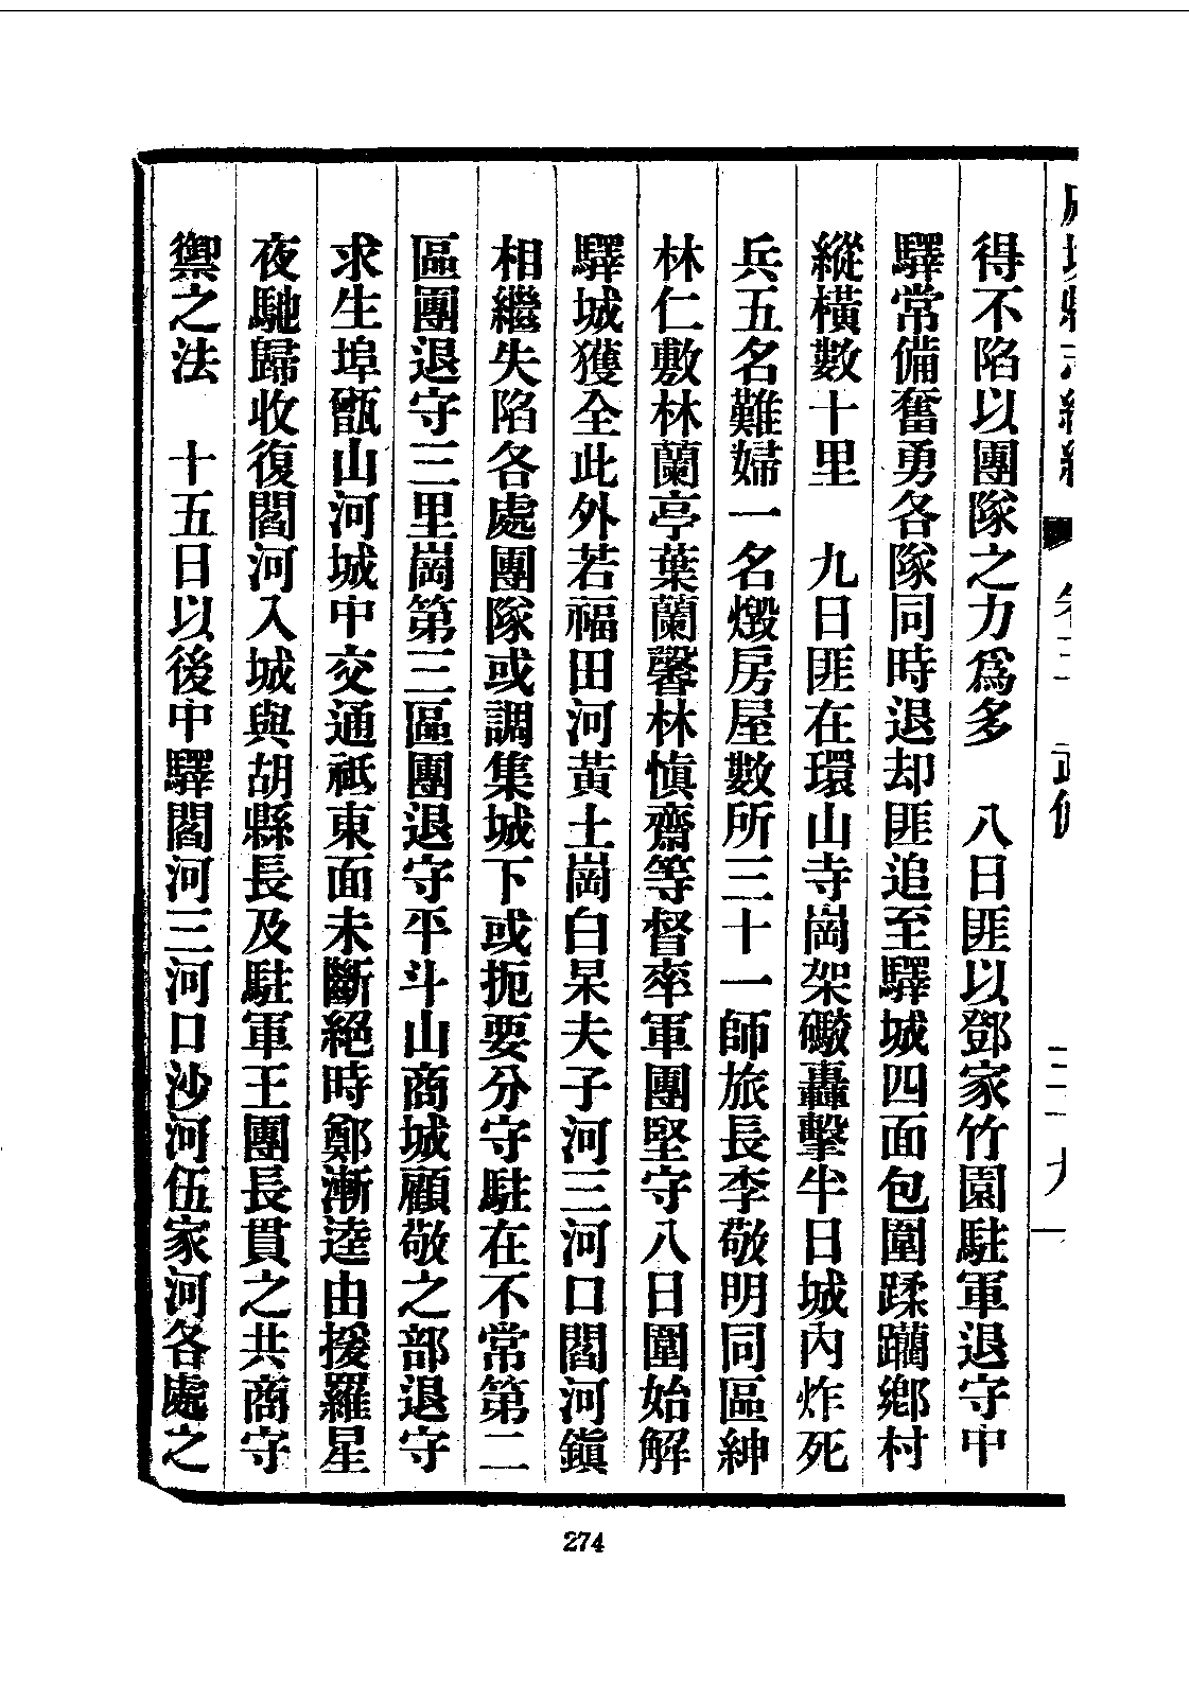 得不陷以團隊之力爲多　八日匪以鄧家竹園駐軍退守中
驛常備奮勇各隊同時退却匪追至驛城四面包圍蹂躪鄉村
縱橫數十里　九日匪在環山寺崗架礮轟擊半日城內炸死
兵五名難婦一名燬房屋數所三十一師旅長李敬明同區紳
林仁敷林蘭亭葉蘭馨林愼齋等督率軍團堅守八日圍始解
驛城獲全此外若福田河黃土崗白杲夫子河三河口閻河鎭
相繼失陷各處團隊或調集城下或扼要分守駐在不常第二
區團退守三里崗第三區團退守平斗山商城顧敬之部退守
求生埠甑山河城中交通祇東面未斷絕時鄭漸逵由援羅星
夜馳歸收復閻河入城與胡縣長及駐軍王團長貫之共商守
禦之法　十五日以後中驛閻河三河口沙河伍家河各處之
274